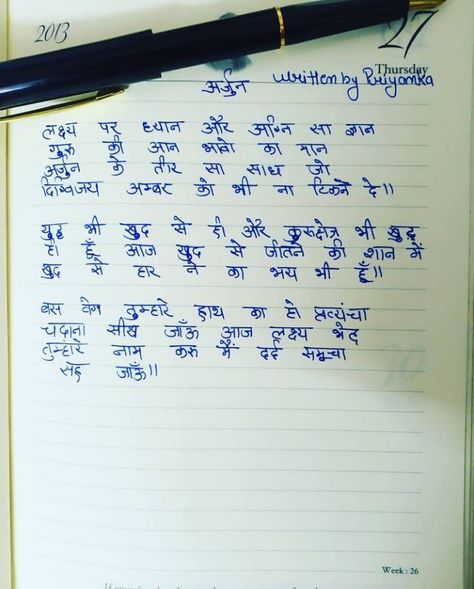 2013
27
Thursday
अर्जुन written by Priyanka
लक्ष्य पर ध्यान और अग्नि सा ज्ञान
गुरु की आन भावो का मान
अर्जुन के तीर सा साध जो
दिग्विजय अम्बर को भी ना टिकने दे।।
युद्ध भी खुद से ही और कुरुक्षेत्र भी खुद
ही हूँ आज खुद से जीतने की शान में
खुद से हार ने का भय भी हूँ।।
बस वेग तुम्हारे हाथ का हो प्रत्यंचा
चढ़ाना सीख जाँऊ आज लक्ष्य भेद
तुम्हारे नाम करु मैं दर्द समूचा
सह जाँऊ।।
Week : 26